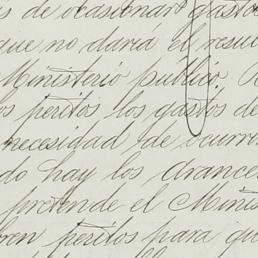 s de ocasionar gastos
que no daria el resul
Ministerio público.
os peritos los gastos de
necesidad de ocurri
do hay los arance
pretende el Minis
ren peritos para qu